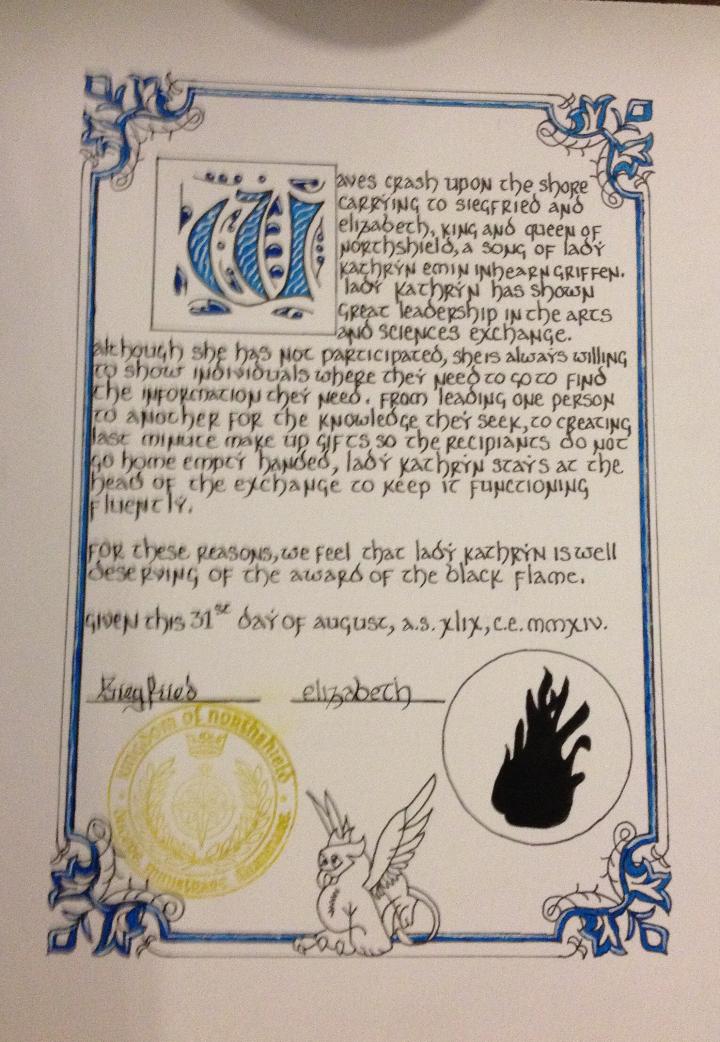 Waves crash upon the shore
carrying to Siegfried and
Elizabeth, King and Queen of
Northshield, a song of Lady
Kathrÿn Emin Inhearn Griffen.
Lady Kathrÿn has shown
great leadership in the arts
and sciences exchange.
Although she has not participated, she is always willing
to show individuals where they need to go to find
the information they need. From leading one person
to another for the knowledge they seek, to creating
last minute make up gifts so the recipiants do not
go home empty handed, Lady Kathrÿn stays at the
head of the exchange to keep it functioning
fluently.
For these reasons, we feel that Lady Kathrÿn is well
deserving of the award of the black flame.
Given this 31st day of August, A.S. XLIX, C.E. MMXIV.
Siegfried Elizabeth
Kingdom of Northshield